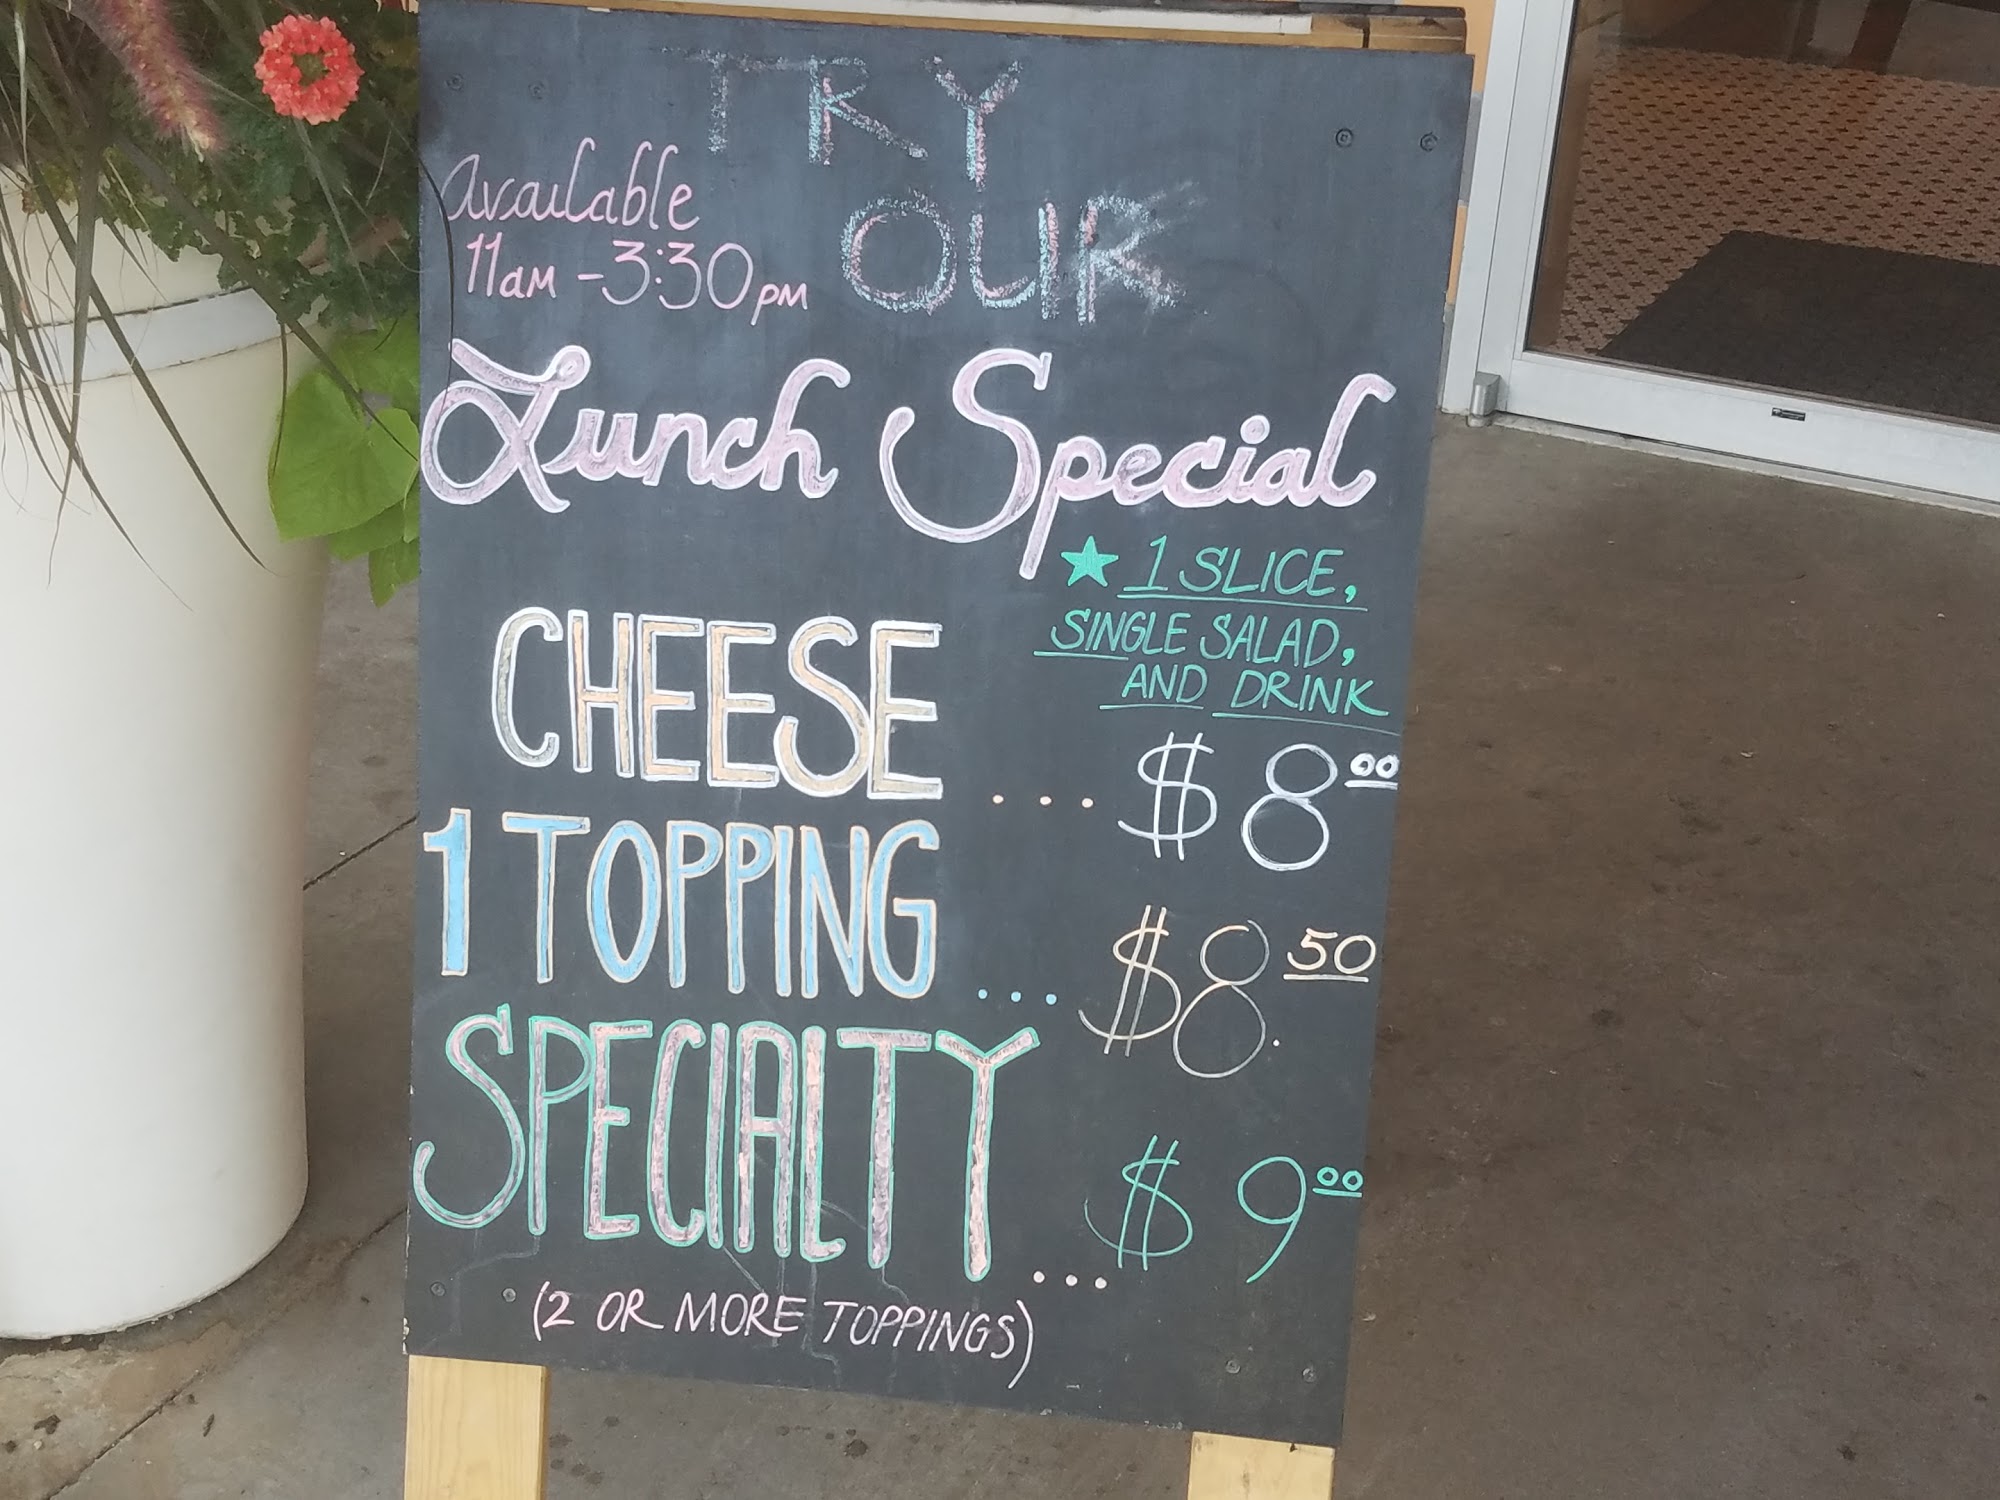 TRY
OUR
available
11am - 3:30pm
Lunch Special
★ 1 SLICE,
SINGLE SALAD,
AND DRINK
CHEESE ... $8.00
1 TOPPING ... $8.50
SPECIALTY ... $9.00
(2 OR MORE TOPPINGS)